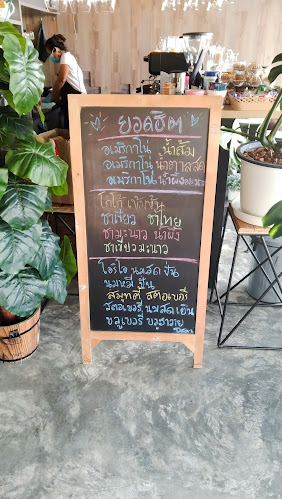 ยอดฮิต
อเมริกาโน่ น้ำส้ม
อเมริกาโน่ น้ำตาลสด
อเมริกาโน่ น้ำผึ้งมะนาว
โกโก้ เข้มข้น
ชาเขียว ชาไทย
ชามะนาว น้ำผึ้ง
ชาเขียวมะนาว
โอริโอ้ นมสด ปั่น
นมหมี ปั่น
สมูทตี้ สตอเบอรี่
สตอเบอรี่ นมสดเย็น
บลูเบอรี่